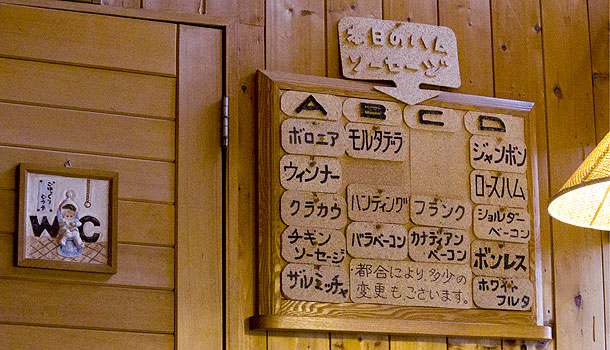 本日のハム
ソーセージ
A B C D
ボロニア モルタデラ ジャンボン
ウィンナー ロースハム
クラカウ ハンティング フランク ショルターベーコン
チキンソーセージ バラベーコン カナディアンベーコン ボンレス
ザルミッチャ ホワイトフルタ
都合により多少の
変更もございます。
WC